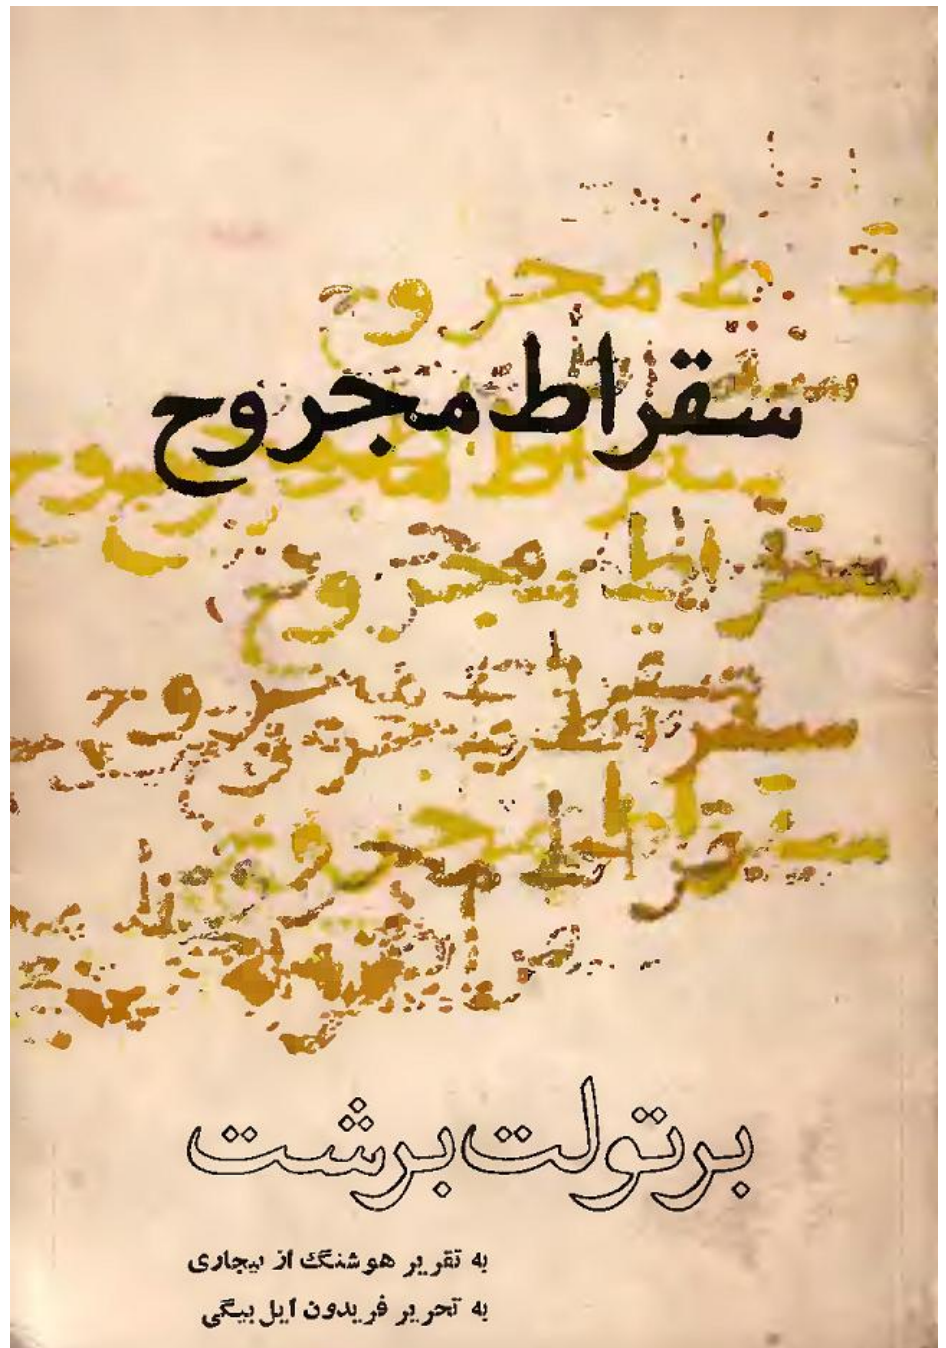 سقراط مجروح
برتولت برشت
به تقریر هوشنگ از بیجاری
به تحریر فریدون ایل بیگی